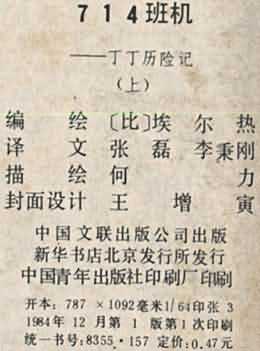 714班机
——丁丁历险记
（上）
编 绘 〔比〕埃 尔 热
译 文 张 磊 李秉刚
描 绘 何 力
封面设计 王 增 寅
中国文联出版公司出版
新华书店北京发行所发行
中国青年出版社印刷厂印刷
开本：787 × 1092毫米1/64印张 3
1984年 12 月第 1 版第1次印刷
统一书号：8355·157 定价：0.47元